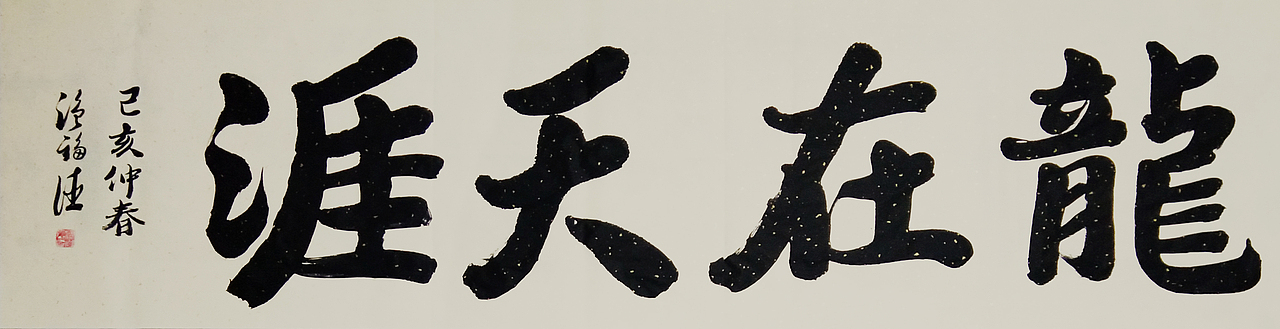 龍在天涯
己亥仲春
福德